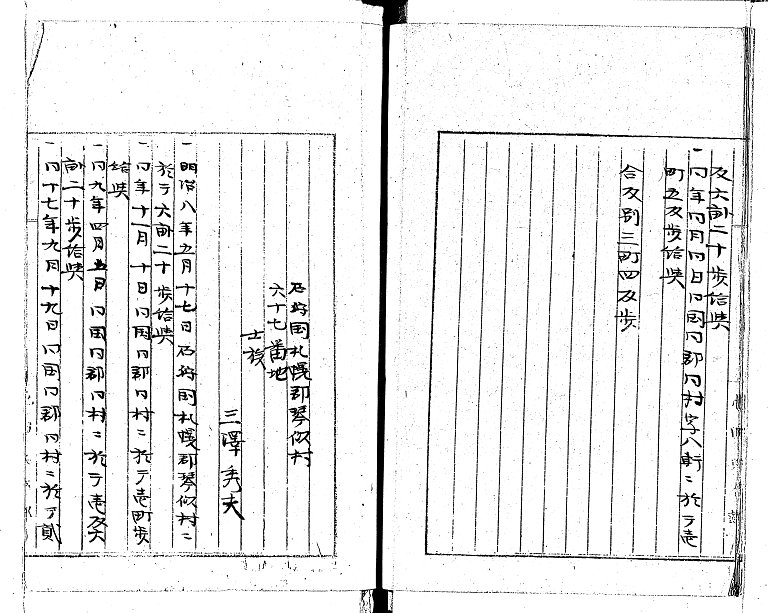 反六畝二十歩給與
一同年同月同日同国同郡同村字八軒ニ於テ壱
町五反歩給與
合反別三町四反歩
石狩国札幌郡琴似村
六十七番地
士族
三澤秀夫
一明治八年五月十七日石狩国札幌郡琴似村ニ
於テ六畝二十歩給與
一同年十一月十日同国同郡同村ニ於テ壱町歩
給與
一同九年四月五日同国同郡同村ニ於テ壱反六
畝二十歩給與
一同十七年九月十九日同国同郡同村ニ於テ貳